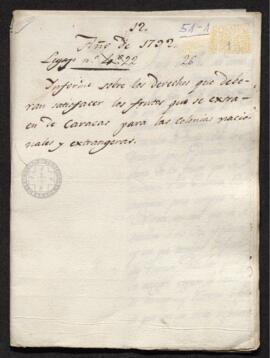 12.
51-1
1
Año de 1792.
Legajo n.º 22
26
Informe sobre los derechos que debe-
ran satisfacer los frutos que se extra-
en de Caracas para las colonias nacio-
nales y extrangeras.